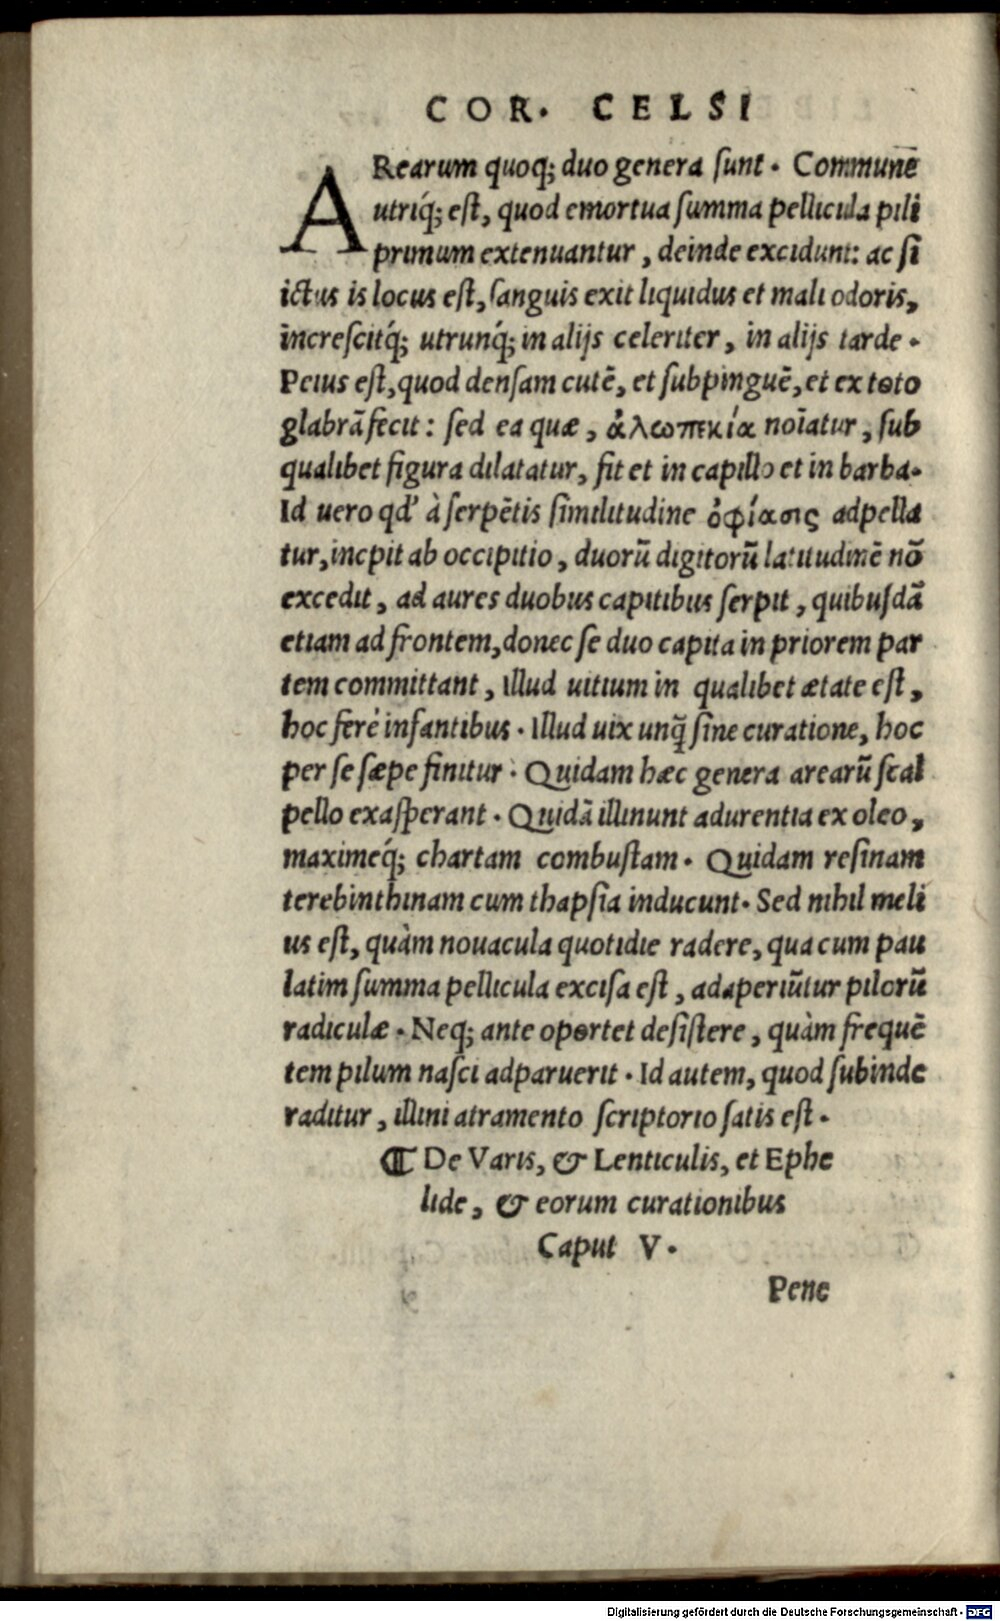 COR. CELSI
ARearum quoq; duo genera ſunt. Communē
utriq́; eſt, quod emortua ſumma pellicula pili
primum extenuantur, deinde excidunt: ac ſi
ictus is locus eſt, ſanguis exit liquidus et mali odoris,
increſcitq́; utrunq́; in alijs celeriter, in alijs tarde.
Peius eſt, quod denſam cutē, et ſubpinguē, et ex toto
glabrā fecit: ſed ea quæ, ἀλωπεκία noīatur, ſub
qualibet figura dilatatur, fit et in capillo et in barba.
Id uero qd' à ſerpētis ſimilitudine ὀφίασις adpella
tur, incpit ab occipitio, duorū digitorū latitudinē nō
excedit, ad aures duobus capitibus ſerpit, quibuſdā
etiam ad frontem, donec ſe duo capita in priorem par
tem committant, illud uitium in qualibet ætate eſt,
hoc ferè infantibus. Illud uix unq̄ ſine curatione, hoc
per ſe ſæpe finitur. Quidam hæc genera arearū ſcal
pello exaſperant. Quidā illinunt adurentia ex oleo,
maximeq́; chartam combuſtam. Quidam reſinam
terebinthinam cum thapſia inducunt. Sed nihil meli
us eſt, quàm nouacula quotidie radere, qua cum pau
latim ſumma pellicula exciſa eſt, adaperiūtur pilorū
radiculæ. Neq; ante oportet deſiſtere, quàm frequē
tem pilum naſci adparuerit. Id autem, quod ſubinde
raditur, illini atramento ſcriptorio ſatis eſt.
¶ De Varis, & Lenticulis, et Ephe
lide, & eorum curationibus
Caput V.
Pene
Digitalisierung gefördert durch die Deutsche Forschungsgemeinschaft - DFG